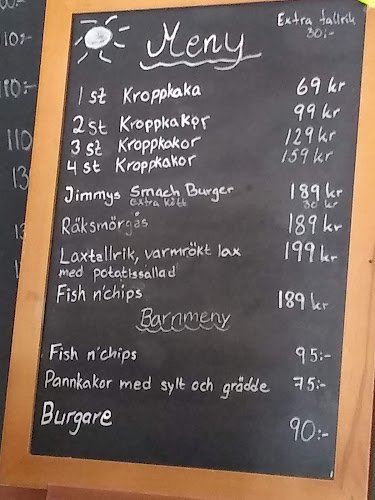 Extra tallrik
30:-
Meny
1 st Kroppkaka 69 kr
2 st Kroppkakor 99 kr
3 st Kroppkakor 129 kr
4 st Kroppkakor 159 kr
Jimmys Smach Burger 189 kr
extra kött 30 kr
Räksmörgås 189 kr
Laxtallrik, varmrökt lax 199 kr
med potatissallad
Fish n'chips 189 kr
Barnmeny
Fish n'chips 95:-
Pannkakor med sylt och grädde 75:-
Burgare 90:-
110:-
110